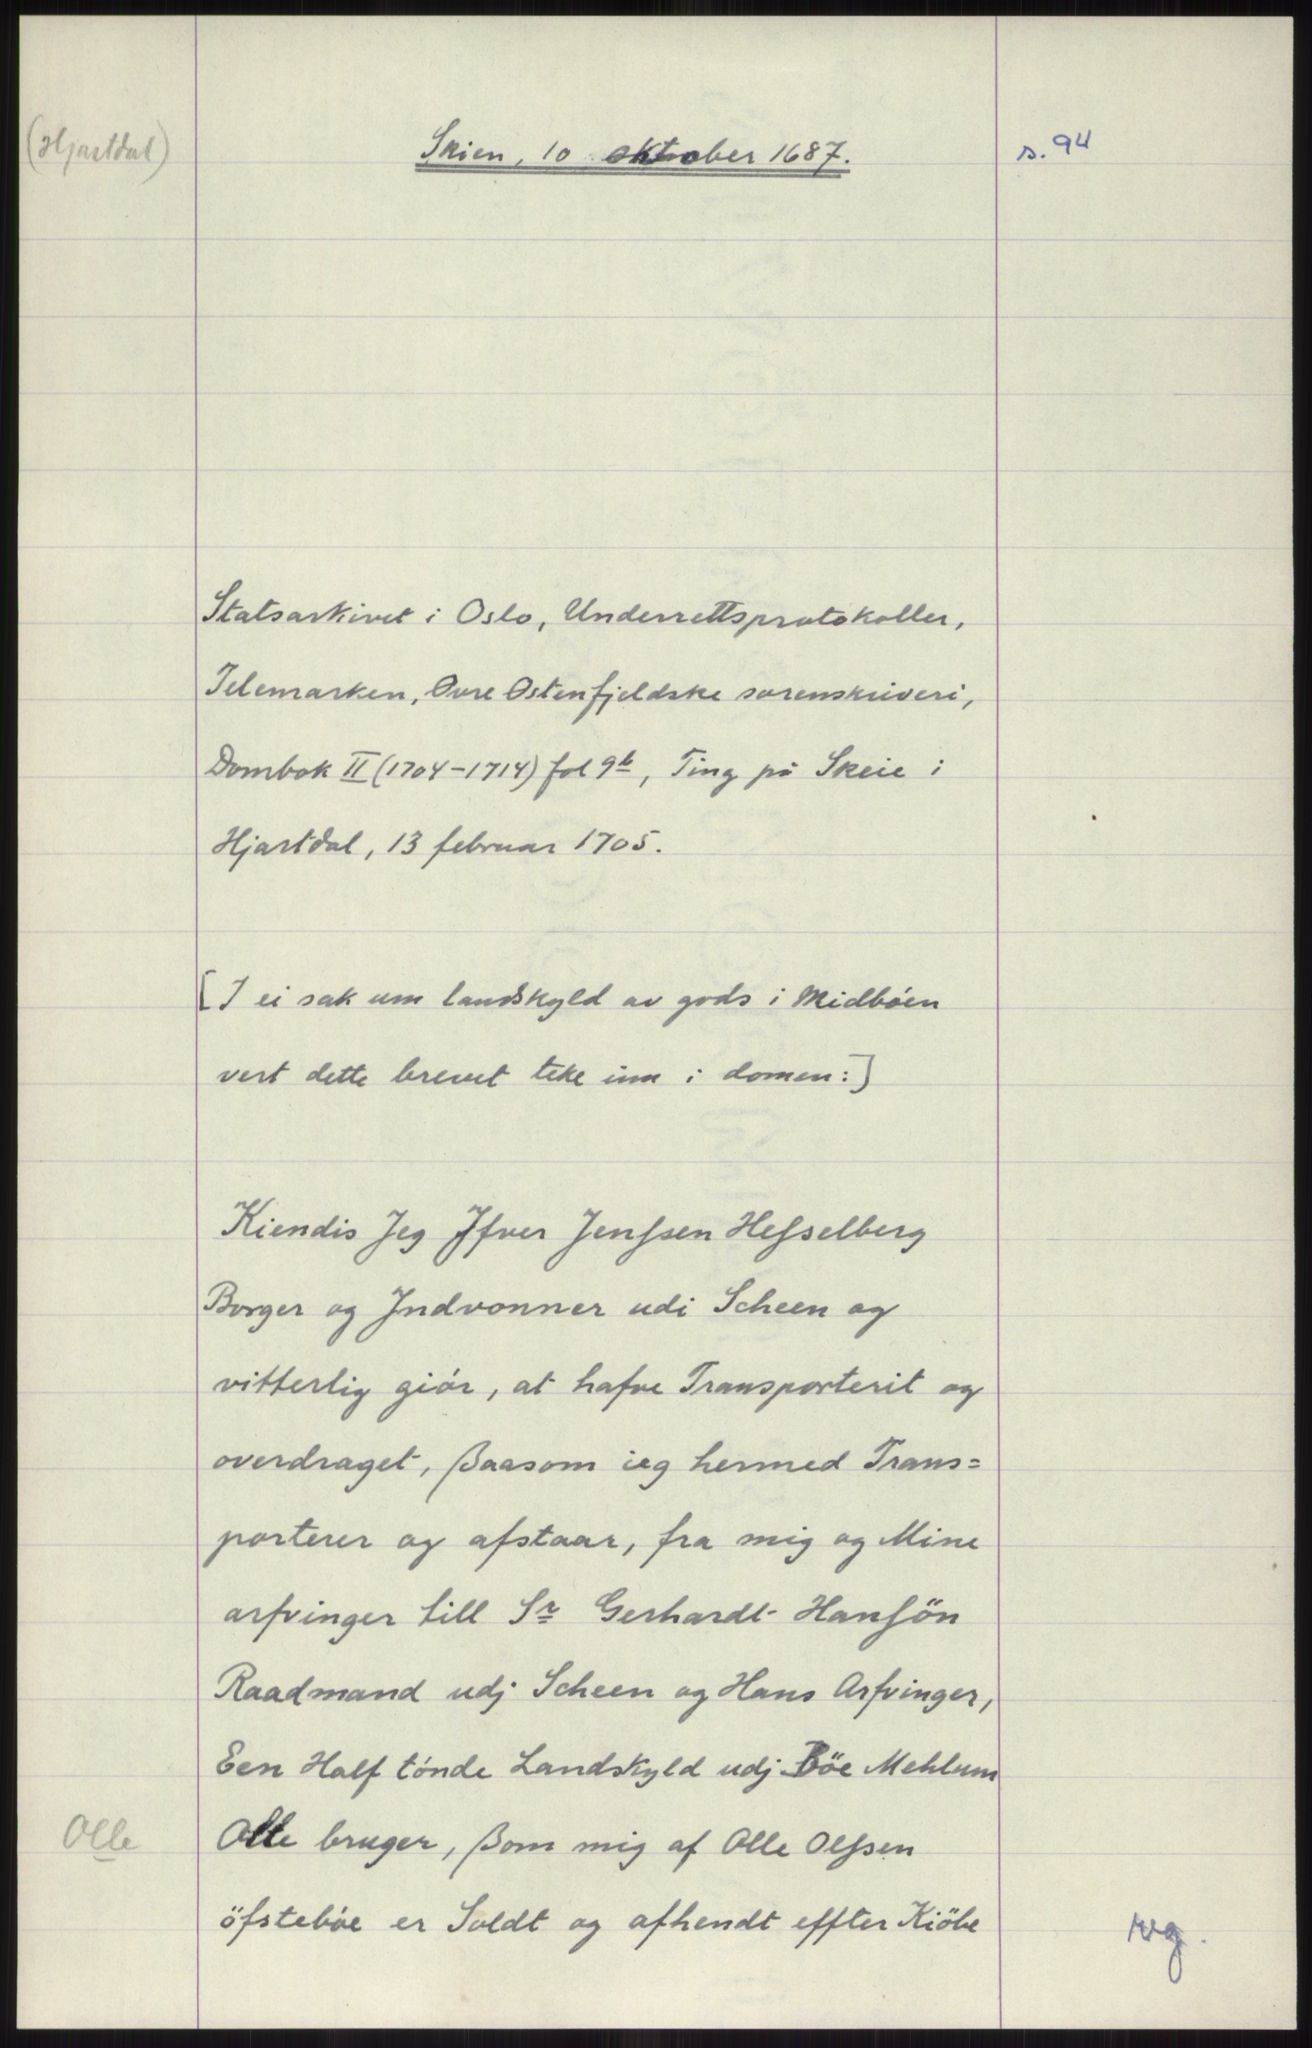 (Hjartdal)
Skien, 10 oktober 1687.
s. 94
Statsarkivet i Oslo, Underrettsprotokoller,
Telemarken, Øvre Østenfjeldske sorenskriveri,
Dombok II (1704-1714) fol 9b, Ting på Skeie i
Hjartdal, 13 februar 1705.
[I ei sak um landskyld av gods i Midböen
vert dette brevet teke inn i domen:]
Kiendis Jeg Jfver Jenſsen Heſselberg
Borger og Jndvonner udi Scheen og
vitterlig giör, at hafve Transporterit og
overdraget, ßaasom ieg hermed Trans=
porterer og afstaar, fra mig og Mine
arfvinger till Sr Gerhardt Hanſön
Raadmand udj Scheen og Hans Arfvinger,
Een Half tönde Landskyld udj Böe Mehlum
Olle bruger, ßom mig af Olle Olſsen
öfsteböe er Soldt og afhendt effter Kiöbe
Olle
rvg.